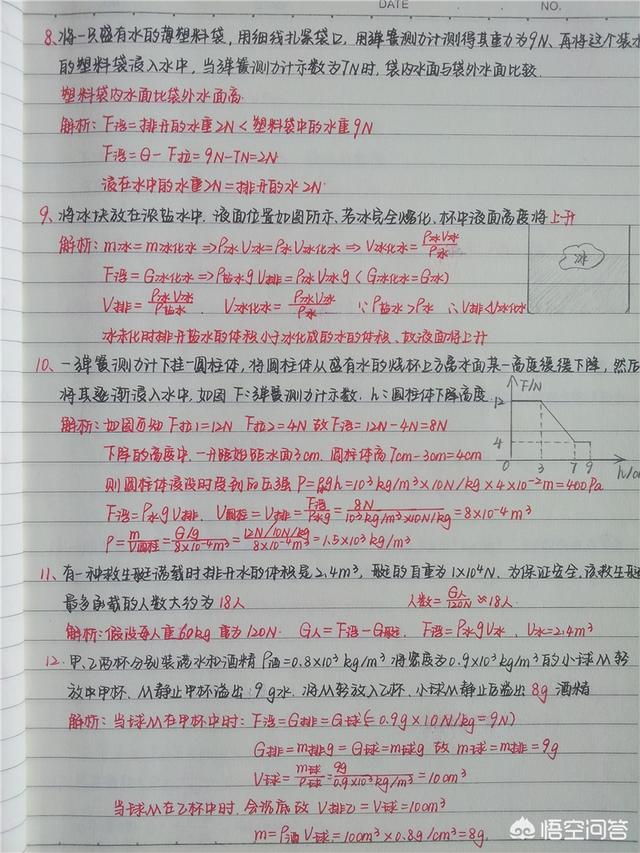 DATE NO.
8、将一只盛有水的薄塑料袋,用细线扎紧袋口,用弹簧测力计测得其重力为9N、再将这个装水
的塑料袋浸入水中,当弹簧测力计示数为7N时,袋内水面与袋外水面比较.
塑料袋内水面比袋外水面高.
解析:F浮=排开的水重2N<塑料袋中的水重9N
F浮=G-F拉=9N-7N=2N
浸在水中的水重2N=排开的水2N
9、将冰块放在浓盐水中.液面位置如图所示.若冰完全熔化.杯中液面高度将上升
解析:m冰=m冰化水⇒ρ冰V冰=ρ水V冰化水⇒V冰化水=ρ冰V冰/ρ水
冰
F浮=G冰化水⇒ρ盐水gV排=ρ冰V冰g(G冰化水=G冰)
V排=ρ冰V冰/ρ盐水. V冰化水=ρ冰V冰/ρ水 ∵ρ盐水>ρ水 ∴V排<V冰化水
冰未化时排开盐水的体积小于冰化成的水的体积、故液面将上升
10、一弹簧测力计下挂一圆柱体,将圆柱体从盛有水的烧杯上方离水面某一高度缓缓下降,然后
将其逐渐浸入水中,如图F:弹簧测力计示数.h:圆柱体下降高度.
F/N
12
4
0 3 7 9 h/cm
解析:如图可知F拉1=12N F拉2=4N 故F浮=12N-4N=8N
下降的高度中.一开始距水面3cm.圆柱体高7cm-3cm=4cm
则圆柱体浸没时受到的压强P=ρgh=10³kg/m³×10N/kg×4×10⁻²m=400Pa
F浮=ρ水gV排、V圆柱=V排=F浮/ρ水g=8N/10³kg/m³×10N/kg=8×10⁻⁴m³
ρ=m/V圆柱=G/g/8×10⁻⁴m³=12N/10N/kg/8×10⁻⁴m³=1.5×10³kg/m³
11、有一种救生艇满载时排开水的体积是2.4m³,艇的自重为1×10⁴N.为保证安全,该救生艇
最多承载的人数大约为18人 人数=G人/120N≈18人.
解析:假设每人重60kg 重为120N. G人=F浮-G艇. F浮=ρ水gV水、V水=2.4m³
12、甲、乙两杯分别装满水和酒精ρ酒=0.8×10³kg/m³将密度为0.9×10³kg/m³的小球M轻
放中甲杯、M静止甲杯溢出:9g水.将M轻放入乙杯、小球M静止后溢出8g酒精
解析:当球M在甲杯中时:F浮=G排=G球(=0.9g×10N/kg=9N)
G排=m排g=G球=m球g 故m球=m排=9g
V球=m球/ρ球=9g/0.9×10³kg/m³=10cm³
当球M在乙杯中时.会沉底故V排乙=V球=10cm³
m=ρ酒V球=10cm³×0.8g/cm³=8g.
悟空问答